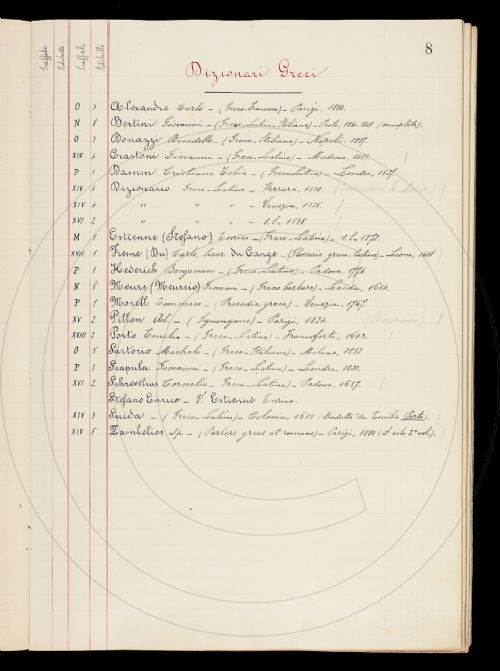 8
Scaffale Palchetto Scaffale Palchetto
Dizionari Greci
O 3 Alexandre Carlo – (Greco-Francese) – Parigi, 1880.
N 8 Bertini Giovanni – (Greco-Latino-Italiano) – Prato, (incompleto).
O 3 Bonazzi Benedetto – (Greco-Italiano) – Napoli, 1887.
XIV 4 Crastoni Giovanni – (Greco-Latino) – Modena, 1499.
P 1 Damm Cristiano Tobia – (Greco-Latino) – Londra, 1827.
XIV 4 Dizionario Greco-Latino – Ferrara, 1510.
XIV 4 " " " – Venezia, 1525.
XVI 2 " " " – s. l., 1598.
M 1 Estienne (Stefano) Enrico – (Greco-Latino) – s. l., 1572.
XVII 1 Fresne (Du) Carlo, Sieur du Cange – (Glossario greco-latino) – Lione, 1688
P 1 Hederich Benjamin – (Greco-Latino) – Padova, 1776.
N 8 Meurs (Meursio) Giovanni – (Greco barbaro) – Leida, 1614.
P 1 Morell Tommaso – (Prosodia greca) – Venezia, 1767.
XV 2 Pillon Al. – (Synonymes) – Parigi, 1824.
XVIII 2 Porto Emilio – (Greco-Latino) – Francoforte, 1603.
O 5 Sartorio Michele – (Greco-Italiano) – Milano,
P 1 Scapula Giovanni – (Greco-Latino) – Londra, 1820.
XVI 2 Schrevelius Cornelio – Greco-Latino – Padova, 1687.
Stefano Enrico – V. Estienne Enrico.
XIV 3 Suida – (Greco-Latino) – Colonia, 1619 (tradotto da Emilio Porto).
XIV 5 Zambelios Sp. – (Parlers grecs et romans) – Parigi, 1880 (il solo I° vol.).